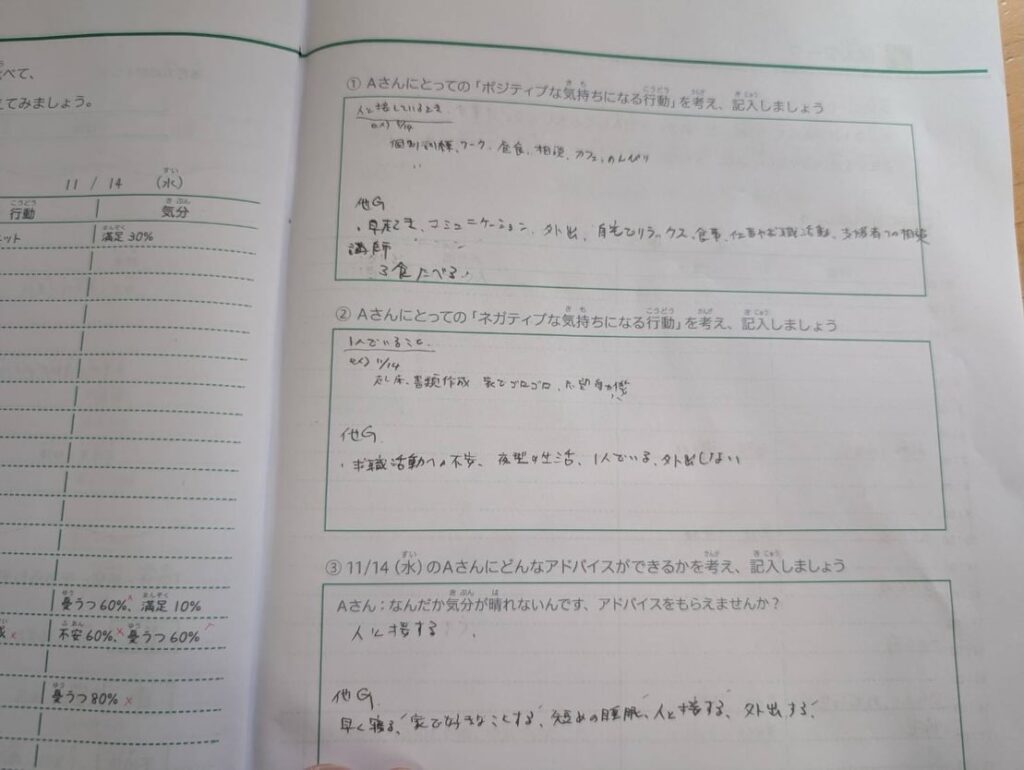 べて、
てみましょう。
11 / 14 (水)
行動 気分
ット 満足 30%
憂うつ 60%、満足 10%
不安 60%、憂うつ 60%
憂うつ 80%
① Aさんにとっての「ポジティブな気持ちになる行動」を考え、記入しましょう
人と接しているとき
ex) 11/14
個別訓練、ワーク、昼食、相談、カフェ、のんびり
他G
・早起き、コミュニケーション、外出、自宅でリラックス、食事、仕事や求職活動、支援者への相談
講師
3食たべる
② Aさんにとっての「ネガティブな気持ちになる行動」を考え、記入しましょう
1人でいること
ex) 11/14
書類作成 家でゴロゴロ
他G
・求職活動への不安、夜型の生活、1人でいる、外出しない
③ 11/14 (水) のAさんにどんなアドバイスができるかを考え、記入しましょう
Aさん：なんだか気分が晴れないんです、アドバイスをもらえませんか？
人と接する
他G
早く寝る、家で好きなことする、短めの睡眠、人と接する、外出する